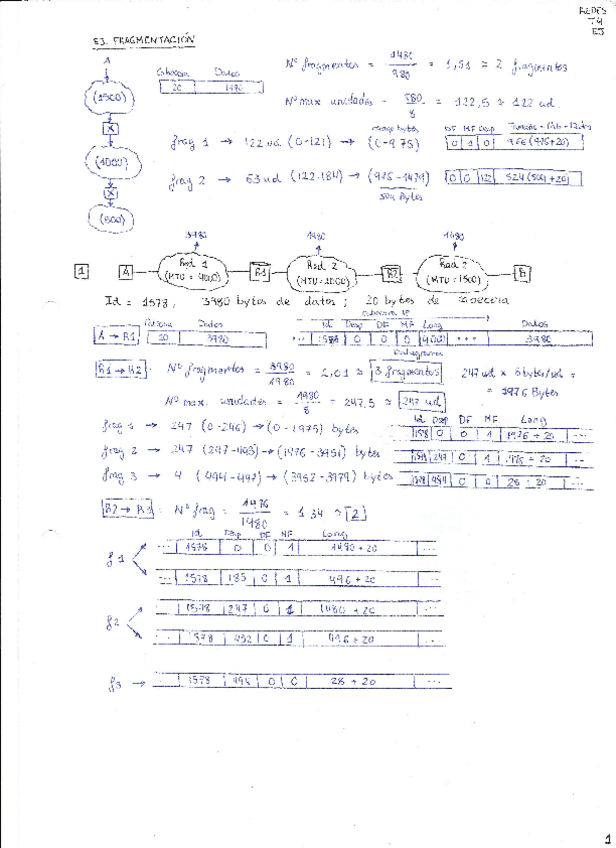 REDES
T4
EJ
EJ. FRAGMENTACIÓN
A
(1500)
(1000)
(600)
Cabecera Datos
20 1480
Nº fragmentos = 1480 / 980 = 1,51 ≈ 2 fragmentos
Nº max unidades = 980 / 8 = 122,5 ≈ 122 ud.
rango bytes
DF MF Desp
frag 1 → 122 ud. (0-121) → (0-975) 0 1 0 996 (976+20)
frag 2 → 63 ud (122-184) → (976-1479) 0 0 122 524 (504+20)
504 bytes
3980 1980 1480
1 A Red 1 (MTU = 4000) R1 Red 2 (MTU = 2000) R2 Red 3 (MTU = 1500) B
Id = 1578, 3980 bytes de datos ; 20 bytes de cabecera
cabecera IP
Cabecera Datos Id Desp DF MF Long Datos
A → R1 20 3980 ... 1578 0 0 0 4000 ... 3980
Datagrama
R1 → R2: Nº fragmentos = 3980 / 1980 = 2,01 ≈ 3 fragmentos 247 ud × 8 byte/ud =
= 1976 Bytes
Nº max. unidades = 1980 / 8 = 247,5 ≈ 247 ud
Id Desp DF MF Long
frag 1 → 247 (0-246) → (0-1975) bytes 1578 0 0 1 1976 + 20 ...
frag 2 → 247 (247-493) → (1976-3951) bytes 1578 247 0 1 1976 + 20 ...
frag 3 → 4 (494-497) → (3952-3979) bytes 1578 494 0 0 28 + 20 ...
R2 → R1: Nº frag = 1976 / 1480 = 1,34 ≈ 2
Id Desp DF MF Long
f1 ... 1578 0 0 1 1480 + 20 ...
... 1578 185 0 1 496 + 20 ...
f2 ... 1578 247 0 1 1480 + 20 ...
... 1578 432 0 1 496 + 20 ...
f3 → ... 1578 494 0 0 28 + 20 ...
1